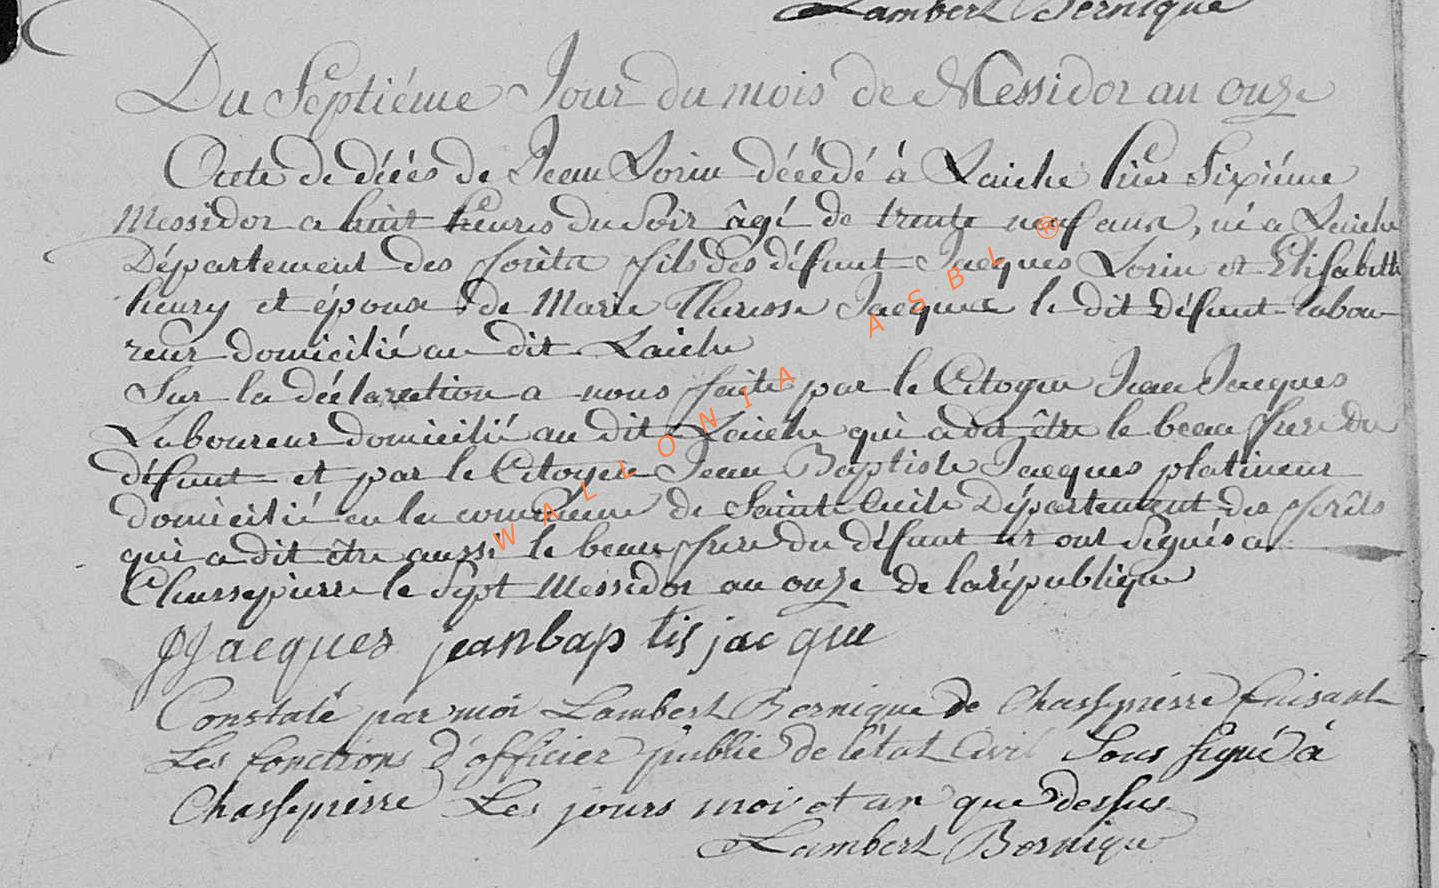 Lambert Bernique
Du Septiéme Jour du mois de Messidor an onze
Acte de décés de Jean Lorin décédé à Laiche hier Sixiéme
Messidor a huit heures du Soir âgé de trente neuf ans, né a Laiche
Département des forêts fils des défunt Jacques Lorin et Elisabeth
henry et époux de Marie Therese Jacques le dit défunt labou
reur domicilié au dit Laiche
Sur la déclaration a nous faite par le Citoyen Jean Jacques
Laboureur domicilié au dit Laiche qui a dit être le beau frere du
défunt et par le Citoyen Jean Baptiste Jacques platineur
domicilié en la commune de Sainte Cecile Département des forêts
qui a dit être aussi le beau frere du défunt et ont Signés a
Chassepierre le Sept Messidor an onze de la république
JJacques jeanbaptis jacque
Constaté par moi Lambert Bernique de Chassepierre faisant
Les fonctions d'officier public de l'état Civil Sous signé à
Chassepierre Les jours moi et an que dessus
Lambert Bernique
WALLONIA ASBL ®